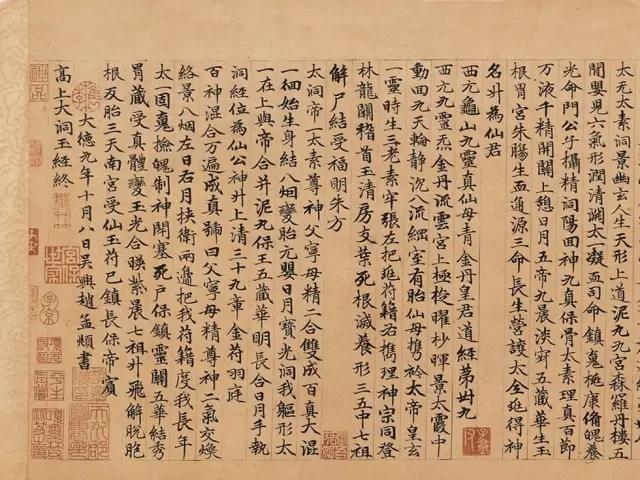 太元太素洞景幽玄人生上道泥九九宮森羅丹樓五
閒嬰兒六氣形潤清淵太一凝血司命鎮䰟梃康脩魄養
光命門公子攝精洞陽回神九真保骨太素理真百節
万液千精開關上憩日月五帝九晨淡五藏華生玉
根胃宮朱腸生血通源三命長生營護太金㢟得神
名升為仙君
西元龜山九靈真仙母青金丹皇君道經第卅九
西元九靈炁金丹流雲宮上極梭曜杪暉景太霞中
動回九天輪静沉八流烟室有胎仙母携袊太帝皇玄
一靈時生三老素牢張左把㢟符籍右携理神宗同登
林龍關稽首玉清房支葉死根滅養形三五中七祖
解尸結受福明朱方
太洞帝一太素尊神父寧母精二合雙成百真大混
一徊始生身結八烟變胎元嬰日月寳光洞我軀形太
一在上與帝合并泥丸保玉五藏華明長合日月手執
洞經位為仙公神升上清三十九章金符羽庭
百神混合万遍成真號曰父寧母精尊神二氣交煥
絡景八烟左日右月挟衛兩邊把我符籍度我長年
太一固䰟檢魄制神閉塞死尸保鎮靈關五華結秀
胃藏受真體變玉光合暎紫晨七祖升飛解脫胞
根反胎三天南宮受仙玉符已鎮長保帝賓
大德九年十月八日吳興趙孟頫書
高上大洞玉經終